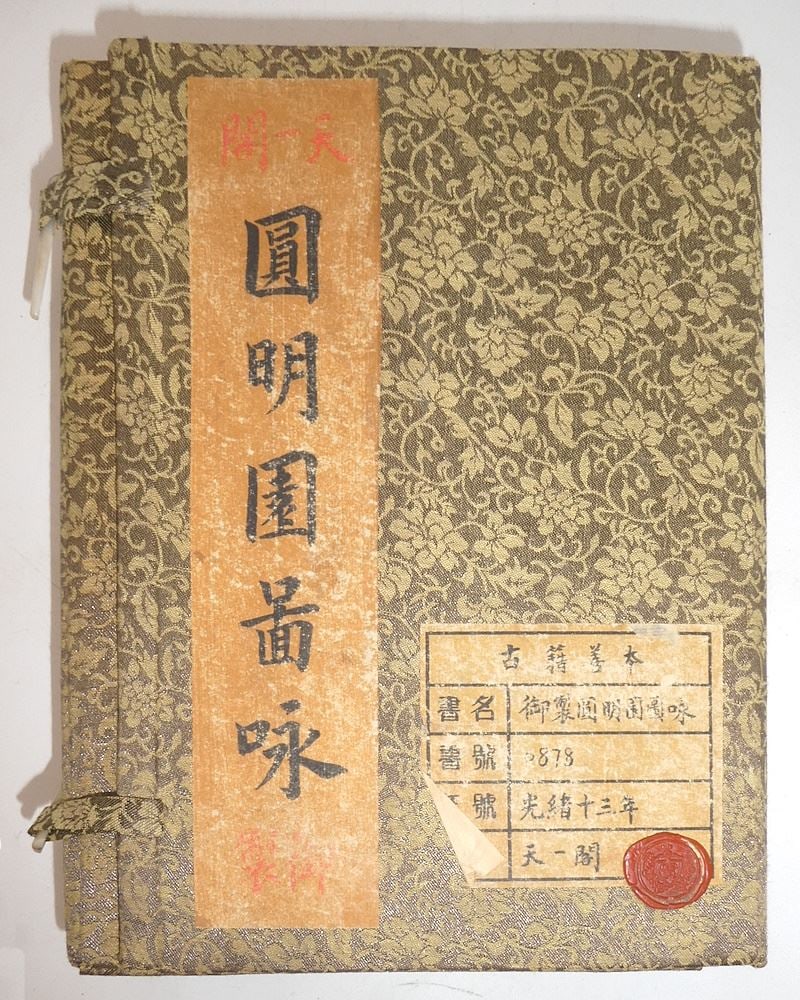 天一閣
圓明園啚咏
古籍善本
書名 御製圓明園啚咏
書號 0878
號 光緒十三年
天一閣